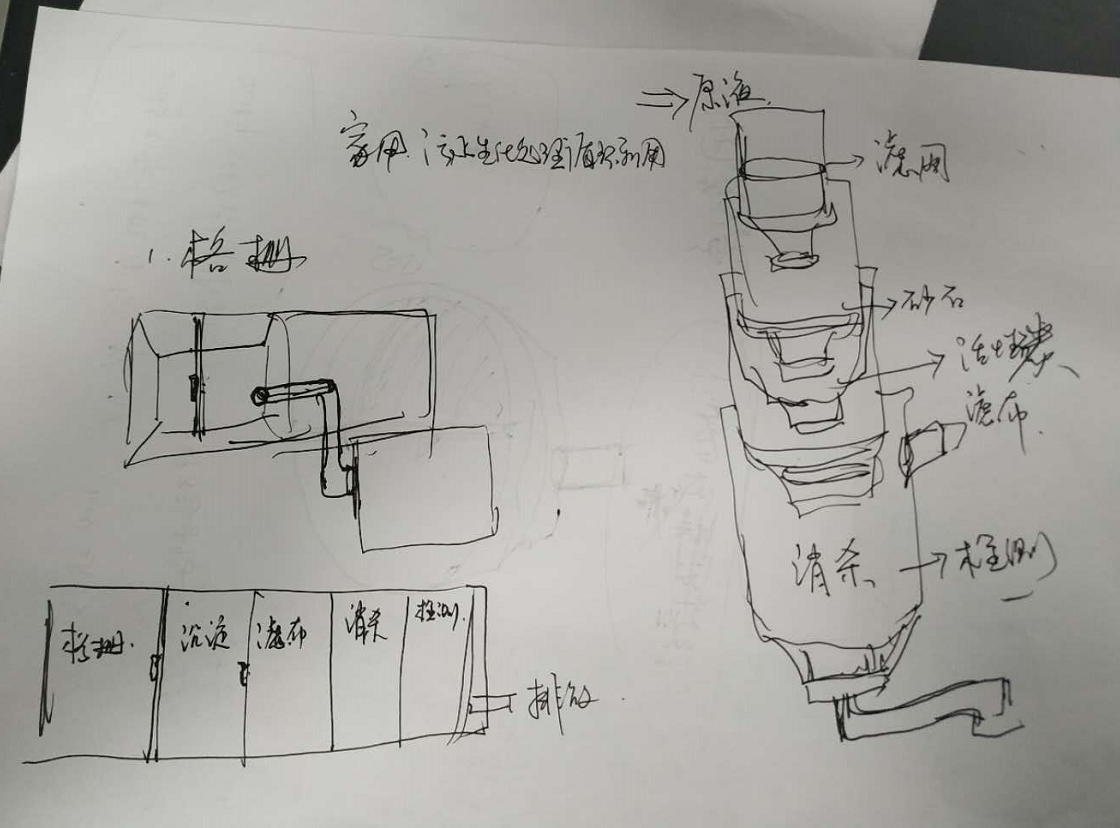 ⇒原液
家用污水生化处理循环利用
滤网
1. 格栅
砂石
活性炭
滤布
消杀
检测
格栅
沉淀
滤布
消杀
检测
排放